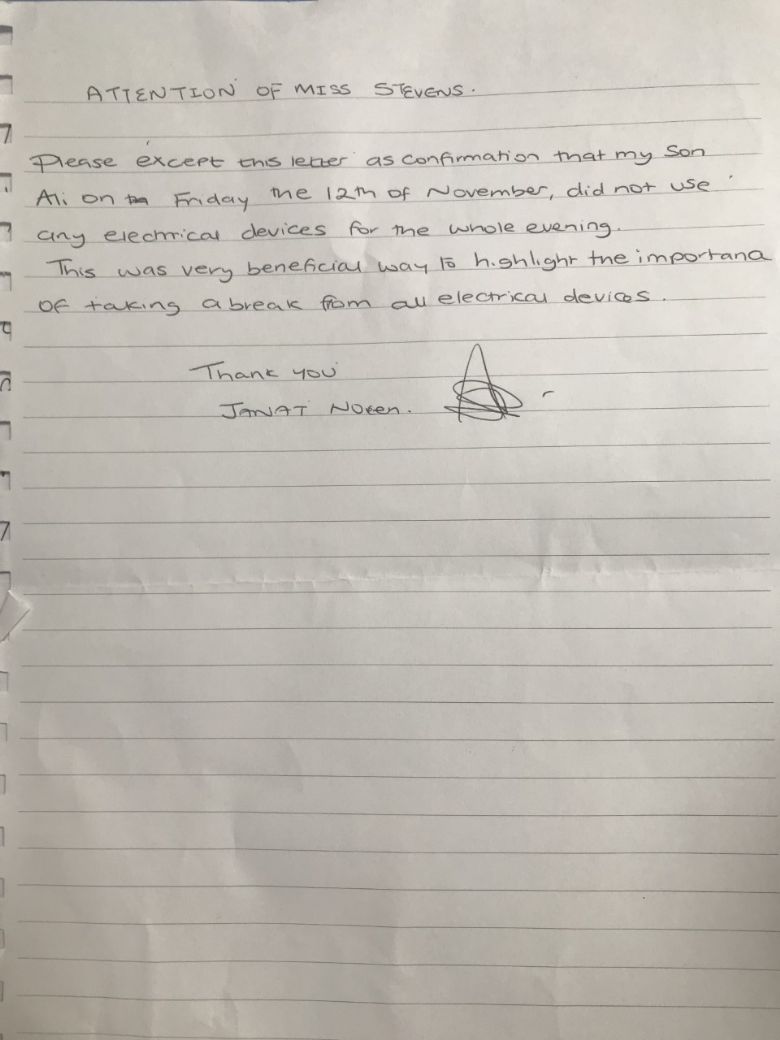 ATTENTION OF MISS STEVENS.
Please except this letter as confirmation that my Son
Ali on Friday the 12th of November, did not use
any electrical devices for the whole evening.
This was very beneficial way to highlight the importance
of taking a break from all electrical devices.
Thank you
JANAT Noken.